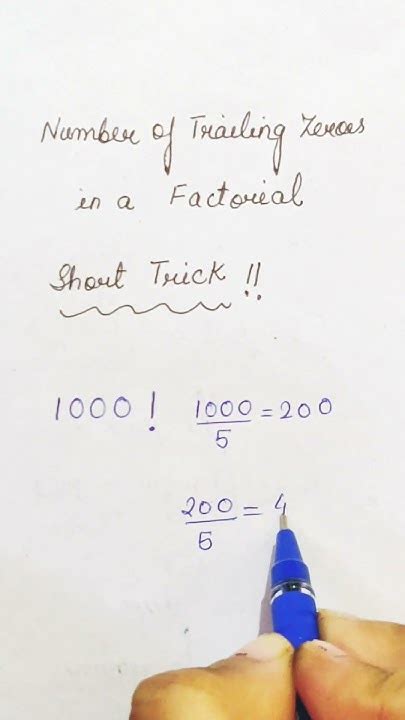 Number of Trailing Zeroes
in a Factorial
Short Trick !!
1000 ! 1000/5 = 200
200/5 = 4